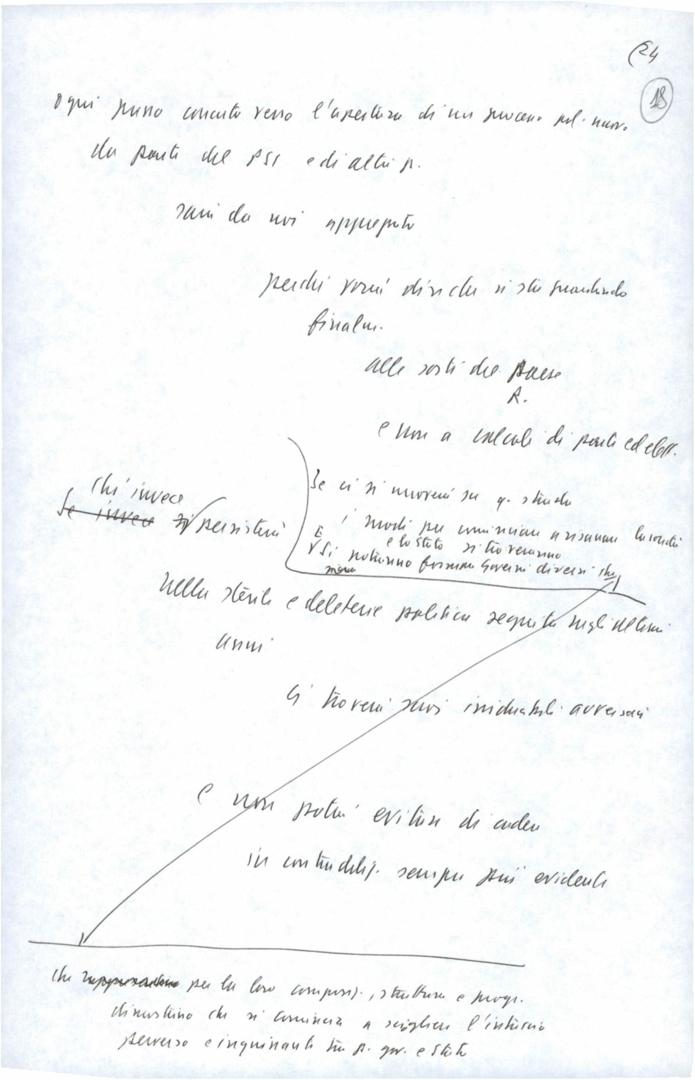 24
18
ogni passo concreto verso l'apertura di un processo pol. nuovo
da parte del PSI e di altri p.
sarà da noi apprezzato
perché vorrà dire che si sta guardando
finalm.
alle sorti del paese
R.
e non a calcoli di parte ed elett.
Se ci si muoverà su q. strada
i modi per cominciare a risanare la società
e lo stato si troveranno
E
Si potranno formare Governi diversi che
chi invece
Se invece si persisterà
nella sterile e deleteria politica seguita negli ultimi
anni
ci troverà suoi irriducibili avversari
e non potrà evitare di cadere
in contraddiz. sempre più evidenti
che per la loro composiz., struttura e progr.
dimostrino che si comincia a sciogliere l'intreccio
perverso e inquinante tra p. gov. e Stato